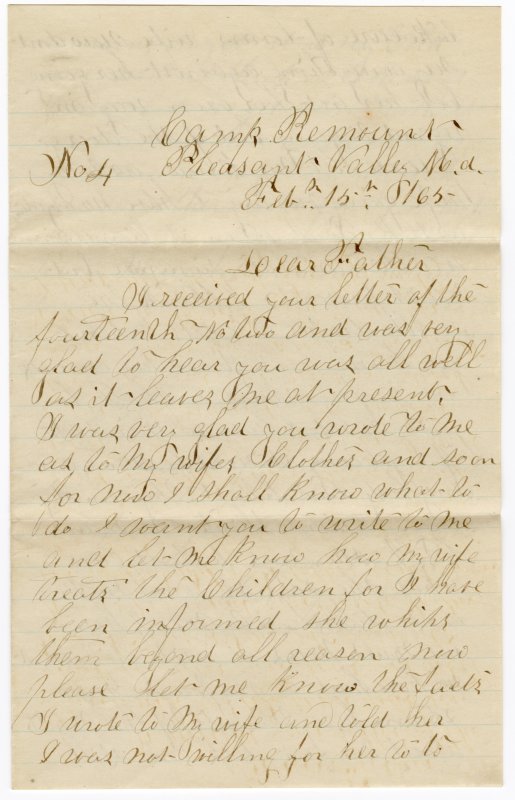 Camp Remount
No. 4 Pleasant Valley M.d.
Feb.h 15th 1865
Dear Father
I received your letter of the
fourteenth No two and was very
glad to hear you was all well
as it leaves me at present.
I was very glad you wrote to me
as to my wifes Clothes and soon
for now I shall know what to
do I want you to write to me
and let me know how my wife
treats the Children for I have
been informed she whips
them beyond all reason now
please let me know the facts
I wrote to my wife and told her
I was not willing for her to to